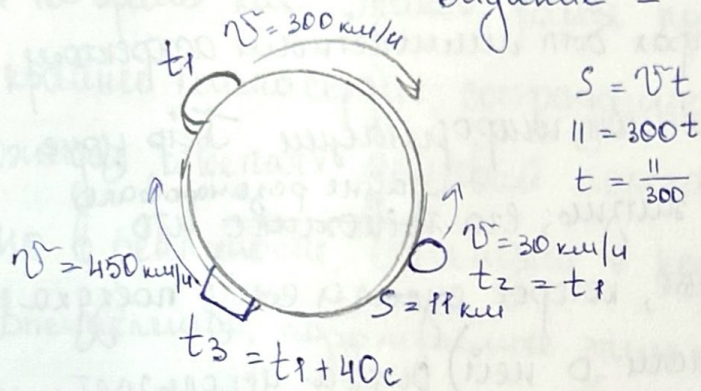 V = 300 км/ч
t1
S = Vt
11 = 300t
t = 11/300
V = 30 км/ч
t2 = t1
V = 450 км/ч
S = 11 км
t3 = t1 + 40с